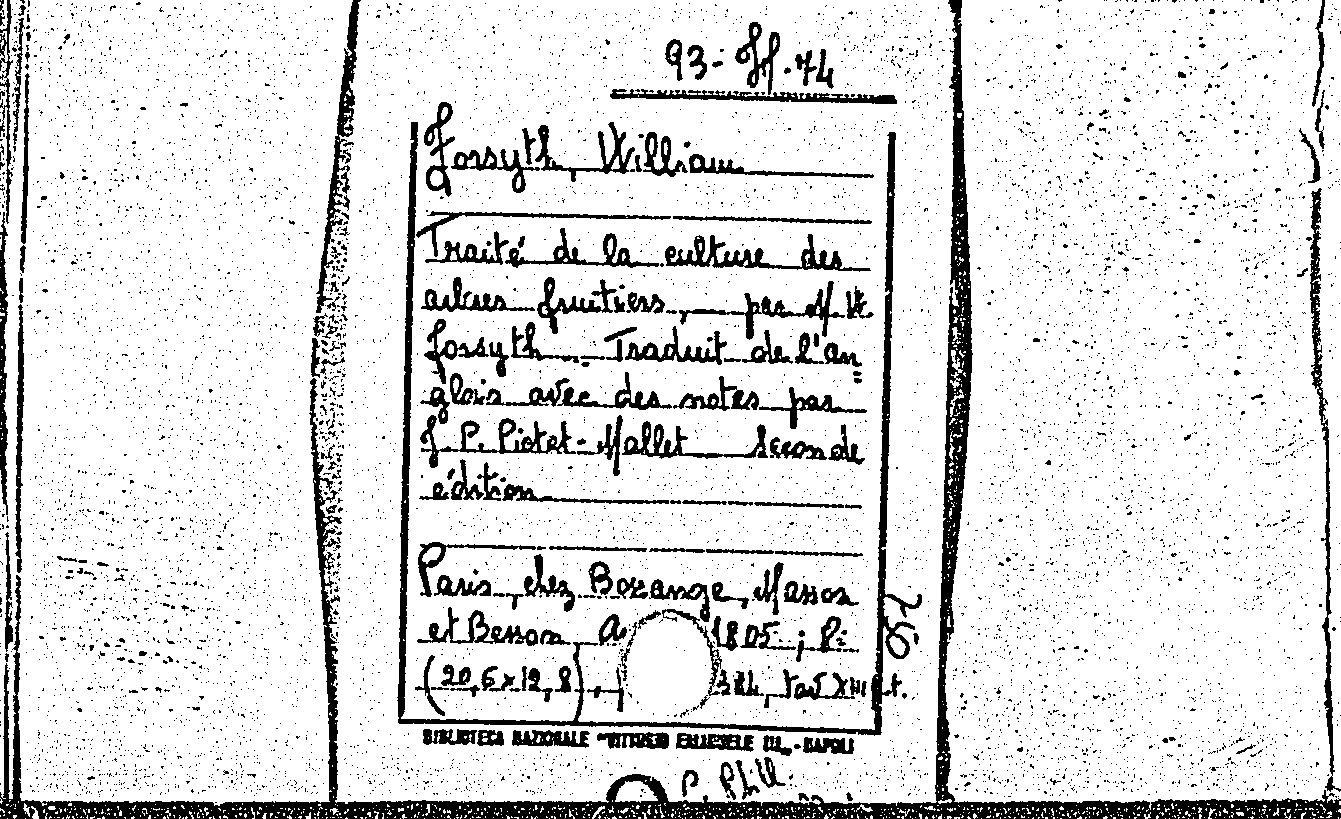 93-Ff.74
Forsyth, William
Traité de la culture des
arbres fruitiers, par M. W.
Forsyth. Traduit de l'an=
glois avec des notes par
J. P. Pictet-Mallet Seconde
édition
Paris, chez Bozange, Masson
et Besson, 1805; 8º
(20,6x12,8), 384, tav XIII
BIBLIOTECA NAZIONALE "VITTORIO EMANUELE III" - NAPOLI